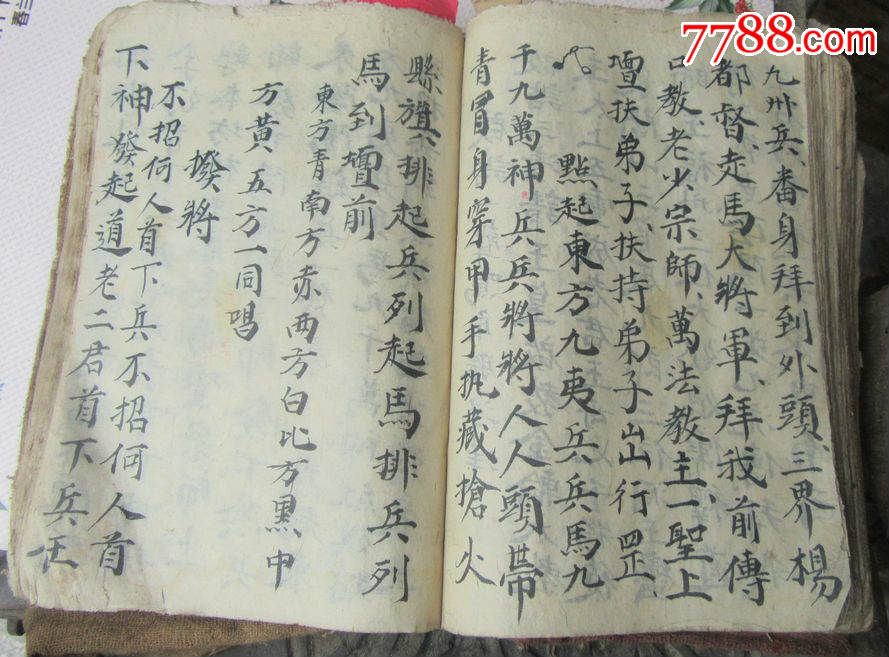 7788.com
九州兵、番身拜到外頭、三界楊
都督、走馬大將軍、拜我前傳
口教老少宗師、萬法教主一聖上
壇扶弟子扶持弟子出行罡
點起東方九夷兵兵馬九
千九萬神兵兵將將人人頭帶
青冒身穿甲手执藏搶火
縣旗排起兵列起馬排兵列
馬到壇前
東方青南方赤西方白北方黑中
方黃五方一同唱
撥將
不招何人首下兵不招何人首
下神發起道老二君首下兵